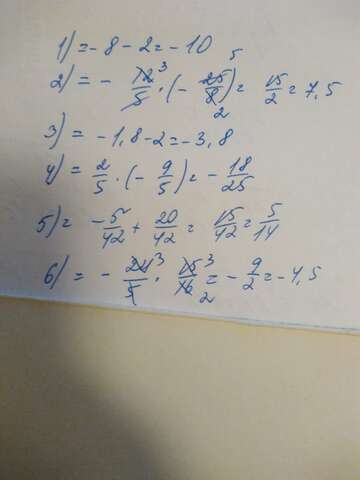 1) = -8-2=-10
2) = - 12/5 3 · (- 25/8 5 2) = 15/2 = 7,5
3) = -1,8-2=-3,8
4) = 2/5 · (- 9/5) = - 18/25
5) = -5/42 + 20/42 = 15/42 = 5/14
6) = - 24/5 3 · 15/16 3 2 = - 9/2 = -4,5